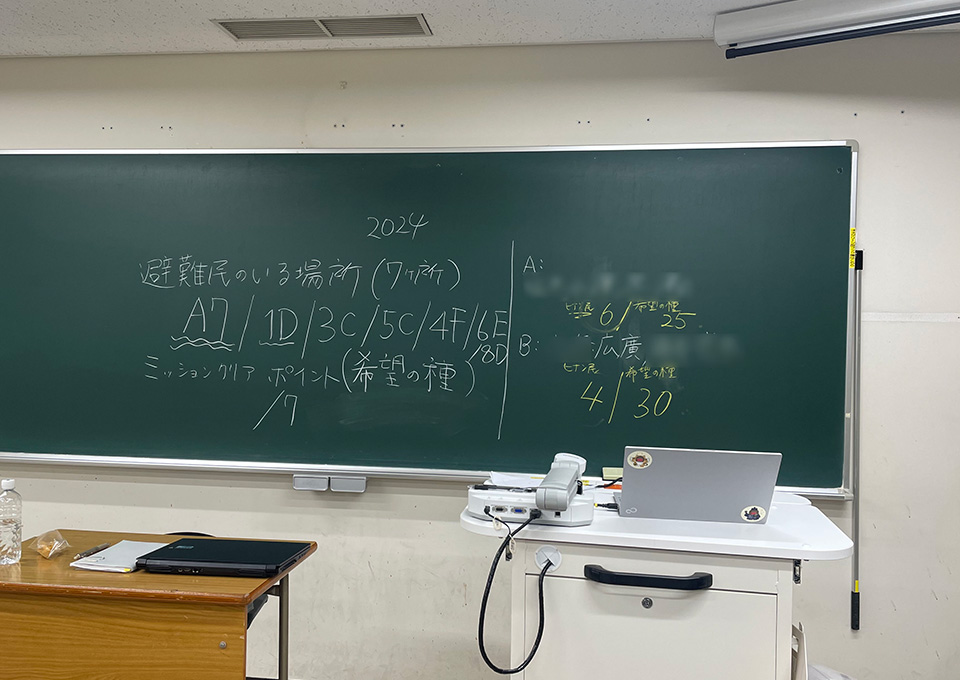 2024
避難民のいる場所(7ヶ所)
A7/1D/3C/5C/4F/6E
/8D
ミッションクリア ポイント(希望の種)
/7
A:
ヒナン民 6/希望の種 25
B: 広廣
ヒナン民 希望の種
4/30